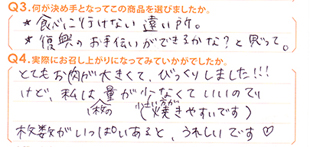 Q3.何が決め手となってこの商品を選びましたか。
★食べに行けない遠い所。
★復興のお手伝いができるかな？と思って。
Q4.実際にお召し上がりになってみていかがでしたか。
とてもお肉が大きくて、びっくりしました!!!
けど、私は量が少なくていいので
1枚の 小さい方が (焼きやすいです)
枚数がいっぱいあると、うれしいです♡